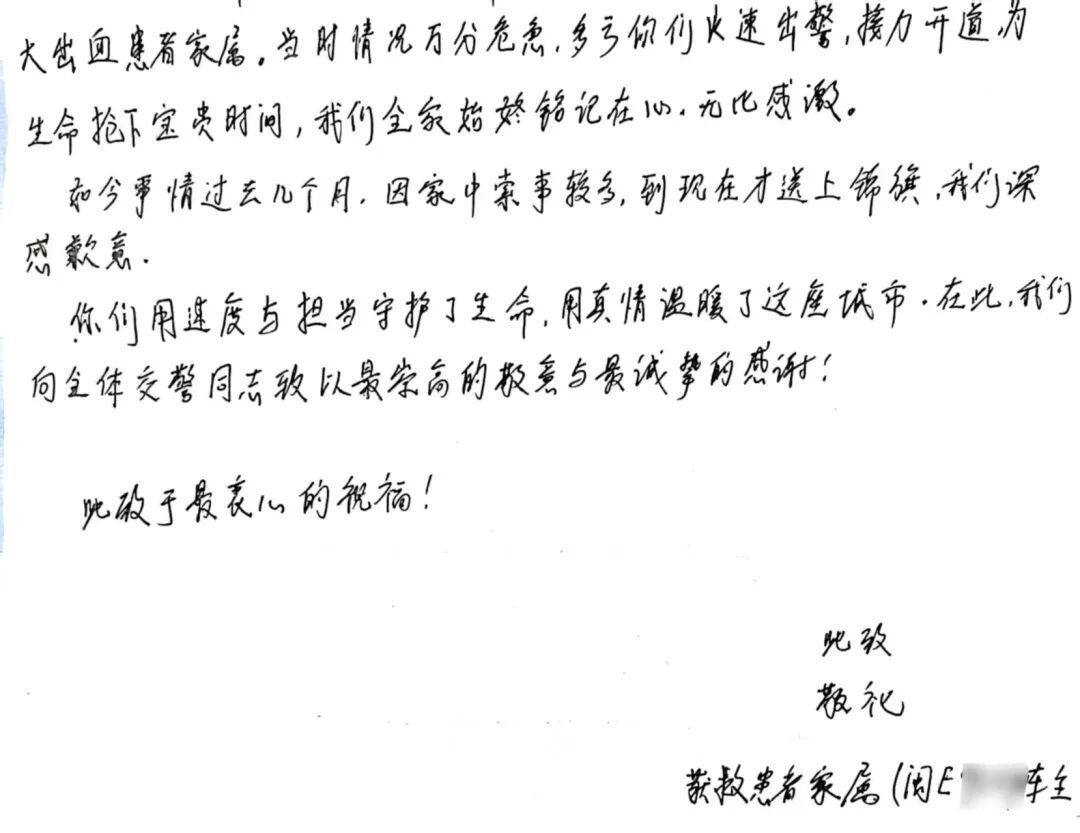 大出血患者家属。当时情况万分危急,多亏你们火速出警,接力开道,为
生命抢下宝贵时间,我们全家始终铭记在心、无比感激。
如今事情过去几个月,因家中索事较多,到现在才送上锦旗,我们深
感歉意.
你们用速度与担当守护了生命,用真情温暖了这座城市.在此,我们
向全体交警同志致以最崇高的敬意与最诚挚的感谢!
此致于最衷心的祝福!
此致
敬礼
获救患者家属(闽E 车主